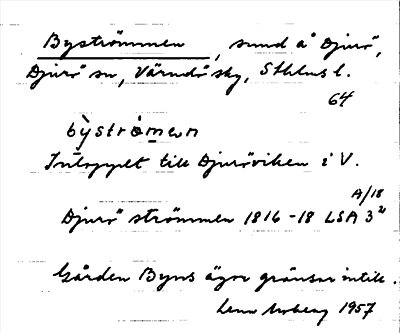 Byströmmen, sund å Djurö,
Djurö sn, Värmdö sky, Sthlms l.
64
býstròmən
Inloppet till Djuröviken i V.
A/18
Djurö strömmen 1816-18 LSA 3²⁾
Gården Byns ägor gränsar intill.
Lena Moberg 1957